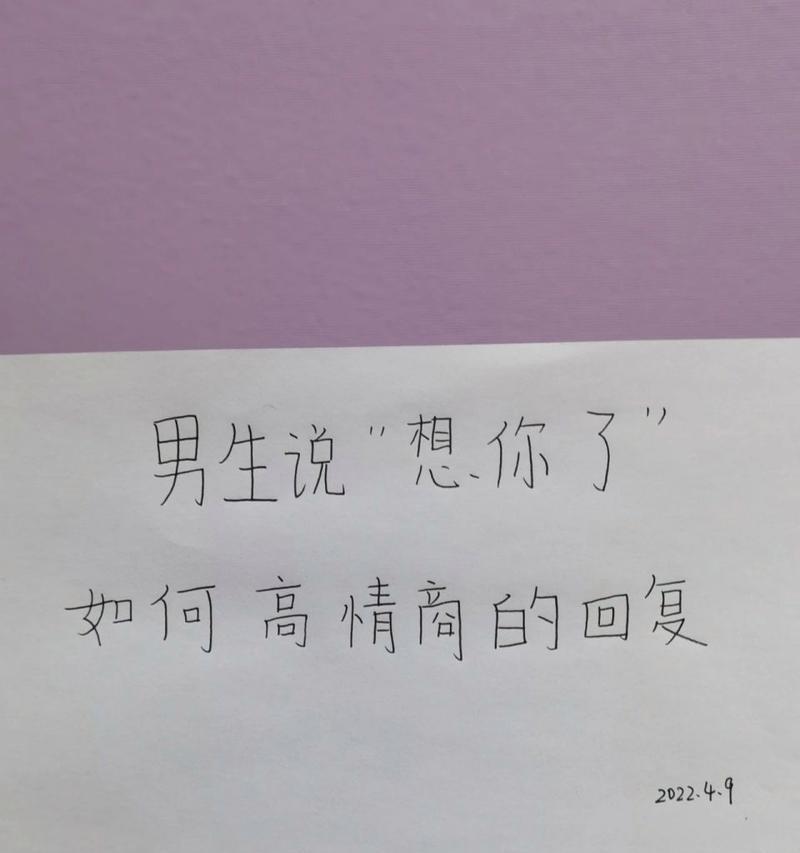 男生说"想你了"
如何高情商的回复
2022.4.9